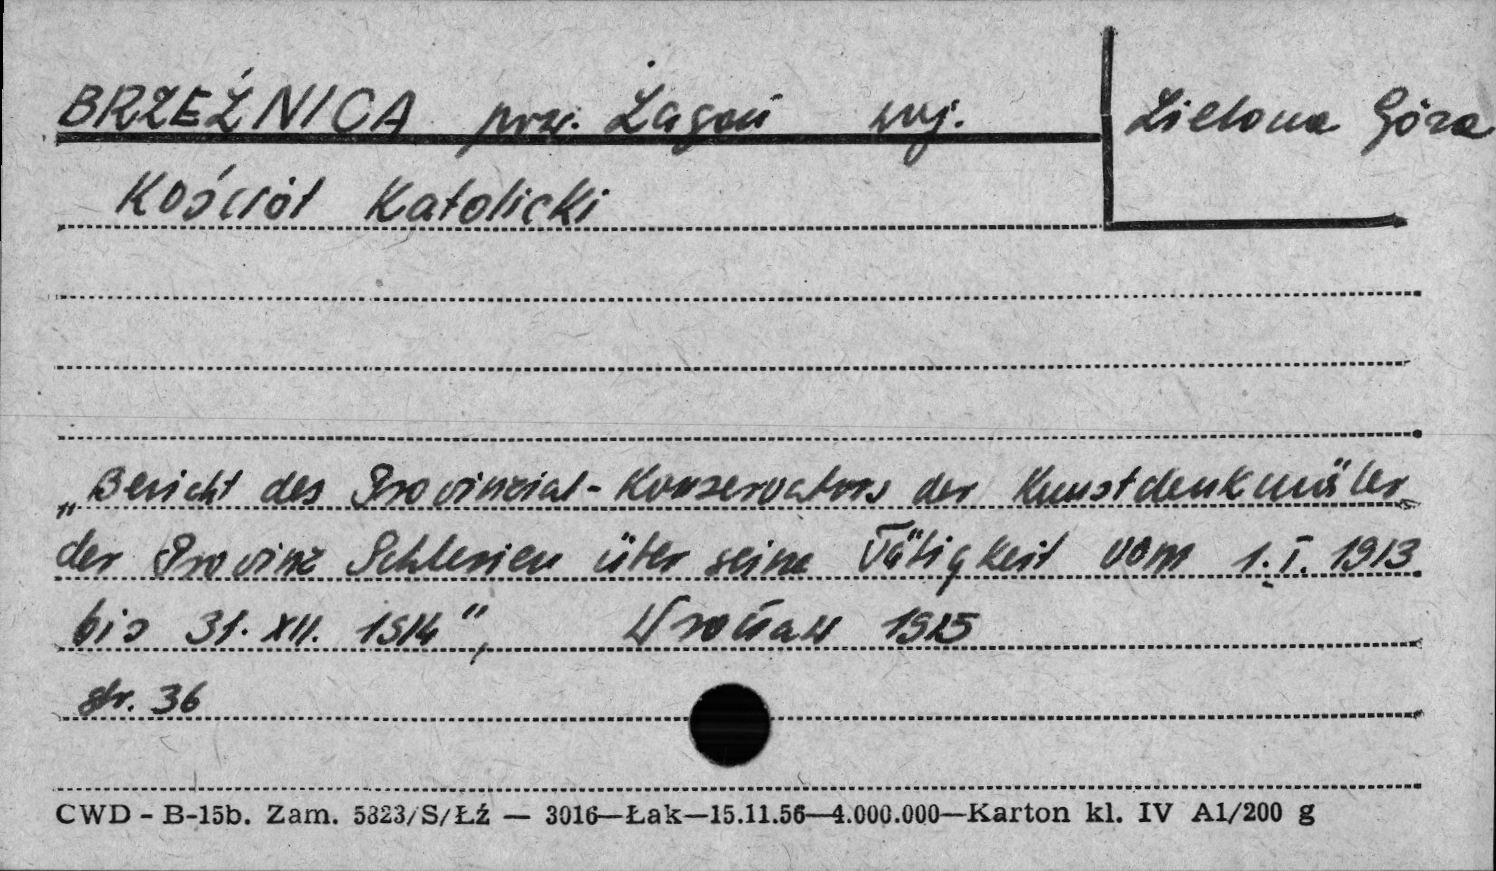 BRZEŹNICA pow. Żagań woj. Zielona Góra
Kościół Katolicki
„Bericht des Provinzial-Konservators der Kunstdenkmäler
der Provinz Schlesien über seine Tätigkeit vom 1.I. 1913
bis 31.XII. 1914", Wrocław 1915
str. 36
CWD - B-15b. Zam. 5323/S/Łź — 3016—Łak—15.11.56—4.000.000—Karton kl. IV A1/200 g